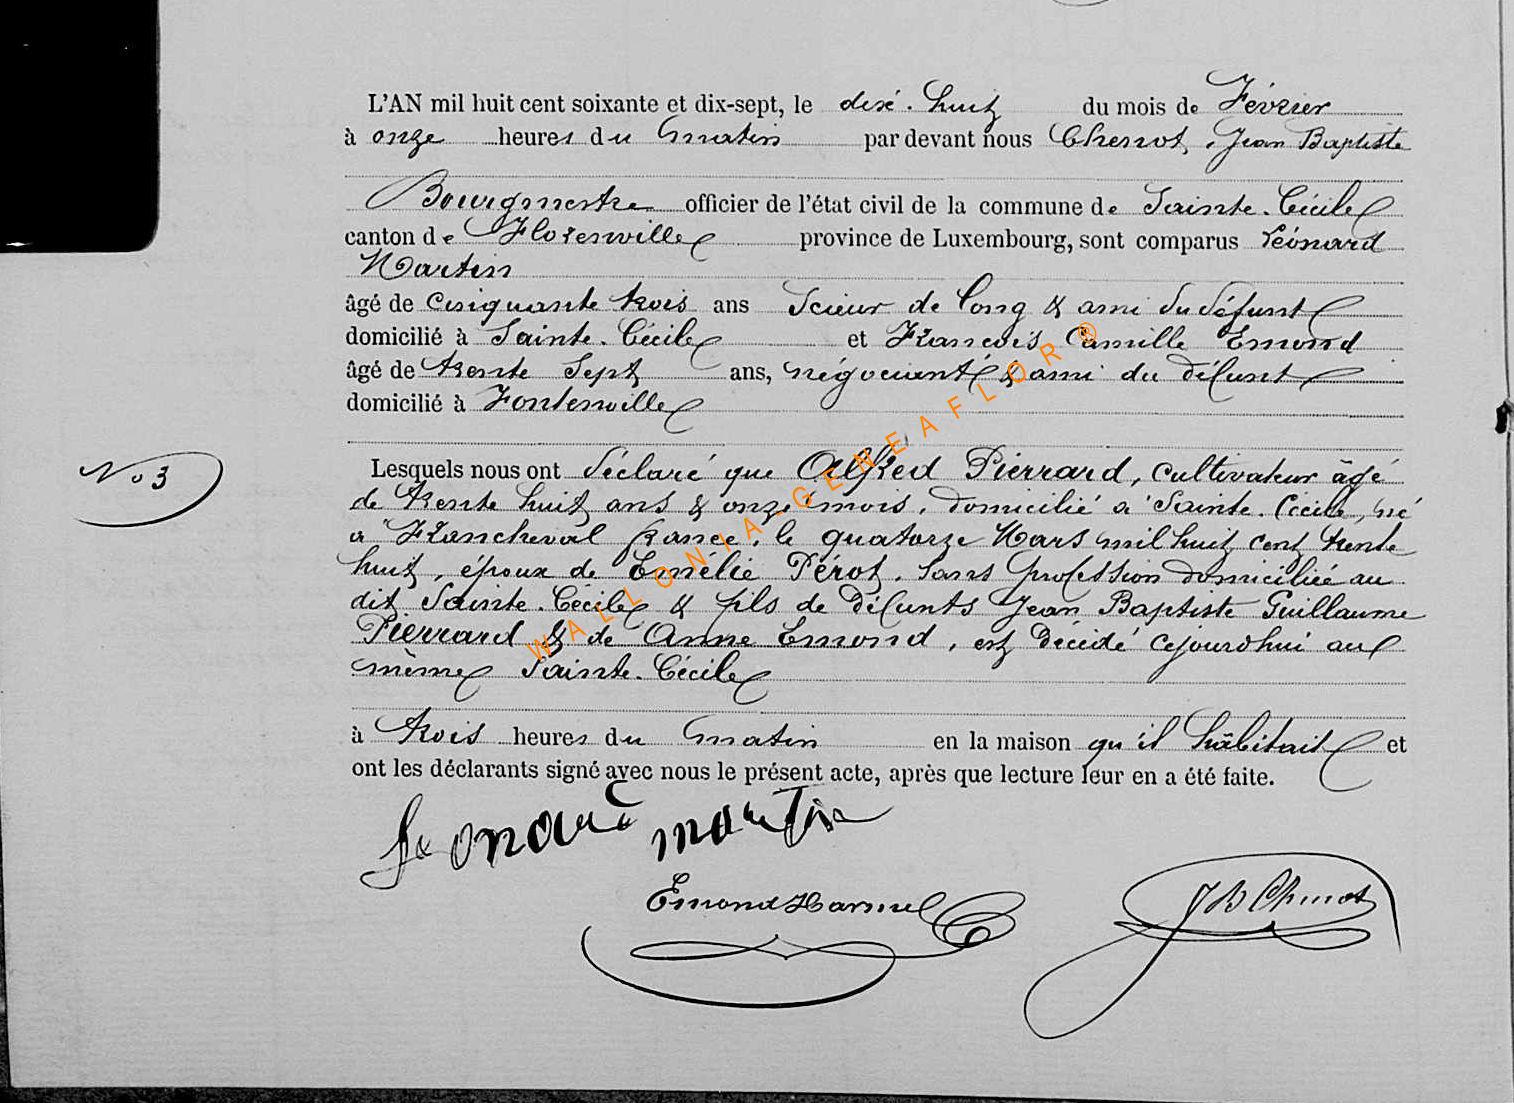 L'AN mil huit cent soixante et dix-sept, le dixé-huit du mois de Février
à onze heures du matin par devant nous Chenot, Jean Baptiste
Bourgmestre officier de l'état civil de la commune de Sainte-Cécile
canton de Florenville province de Luxembourg, sont comparus Léonard
Martin
âgé de cinquante trois ans Scieur de long & ami du défunt
domicilié à Sainte-Cécile et Francois Camille Emond
âgé de trente Sept ans, négociant & ami du défunt
domicilié à Fontenoille
No 3
Lesquels nous ont déclaré que Alfred Pierrard, cultivateur âgé
de trente huit ans & onze mois, domicilié a Sainte-Cécile, né
a Francheval france, le quatorze Mars mil huit cent trente
huit, époux de Emélie Pérot, sans profession domiciliée au
dit Sainte-Cécile & fils de défunts Jean Baptiste Guillaume
Pierrard & de Anne Emond, est décédé cejourd'hui au
même Sainte-Cécile
à trois heures du matin en la maison qu'il habitait et
ont les déclarants signé avec nous le présent acte, après que lecture leur en a été faite.
Leonard martin
Emond Harmel
J B Chenot
WALLONIA-GENEAFLOR®